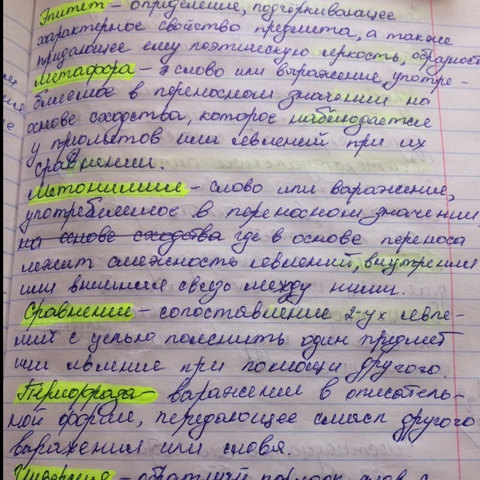 Эпитет - определение, подчёркивающее
характерное свойство предмета, а также
придающее ему поэтическую яркость, образност
Метафора - слово или выражение, употре-
бленное в переносном значении на
основе сходства, которое наблюдается
у предметов или явлений при их
сравнении.
Метонимия - слово или выражение,
употребленное в переносном значении,
на основе сходства где в основе переноса
лежит смежность явлений, внутренняя
или внешняя связь между ними.
Сравнение - сопоставление 2-ух явле-
ний с целью пояснить один предмет
или явление при помощи другого.
Перифраза - выражение в описатель-
ной форме, передающее смысл другого
выражения или слова.
Инверсия - обратный порядок слов в